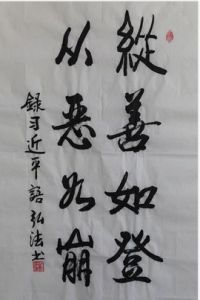 縱善如登
从恶如崩
録习近平語弘法书